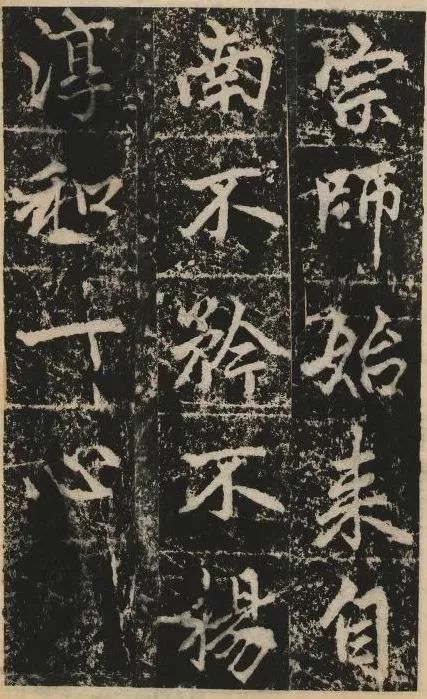 宗師始来自
南不矜不揚
淳和一心